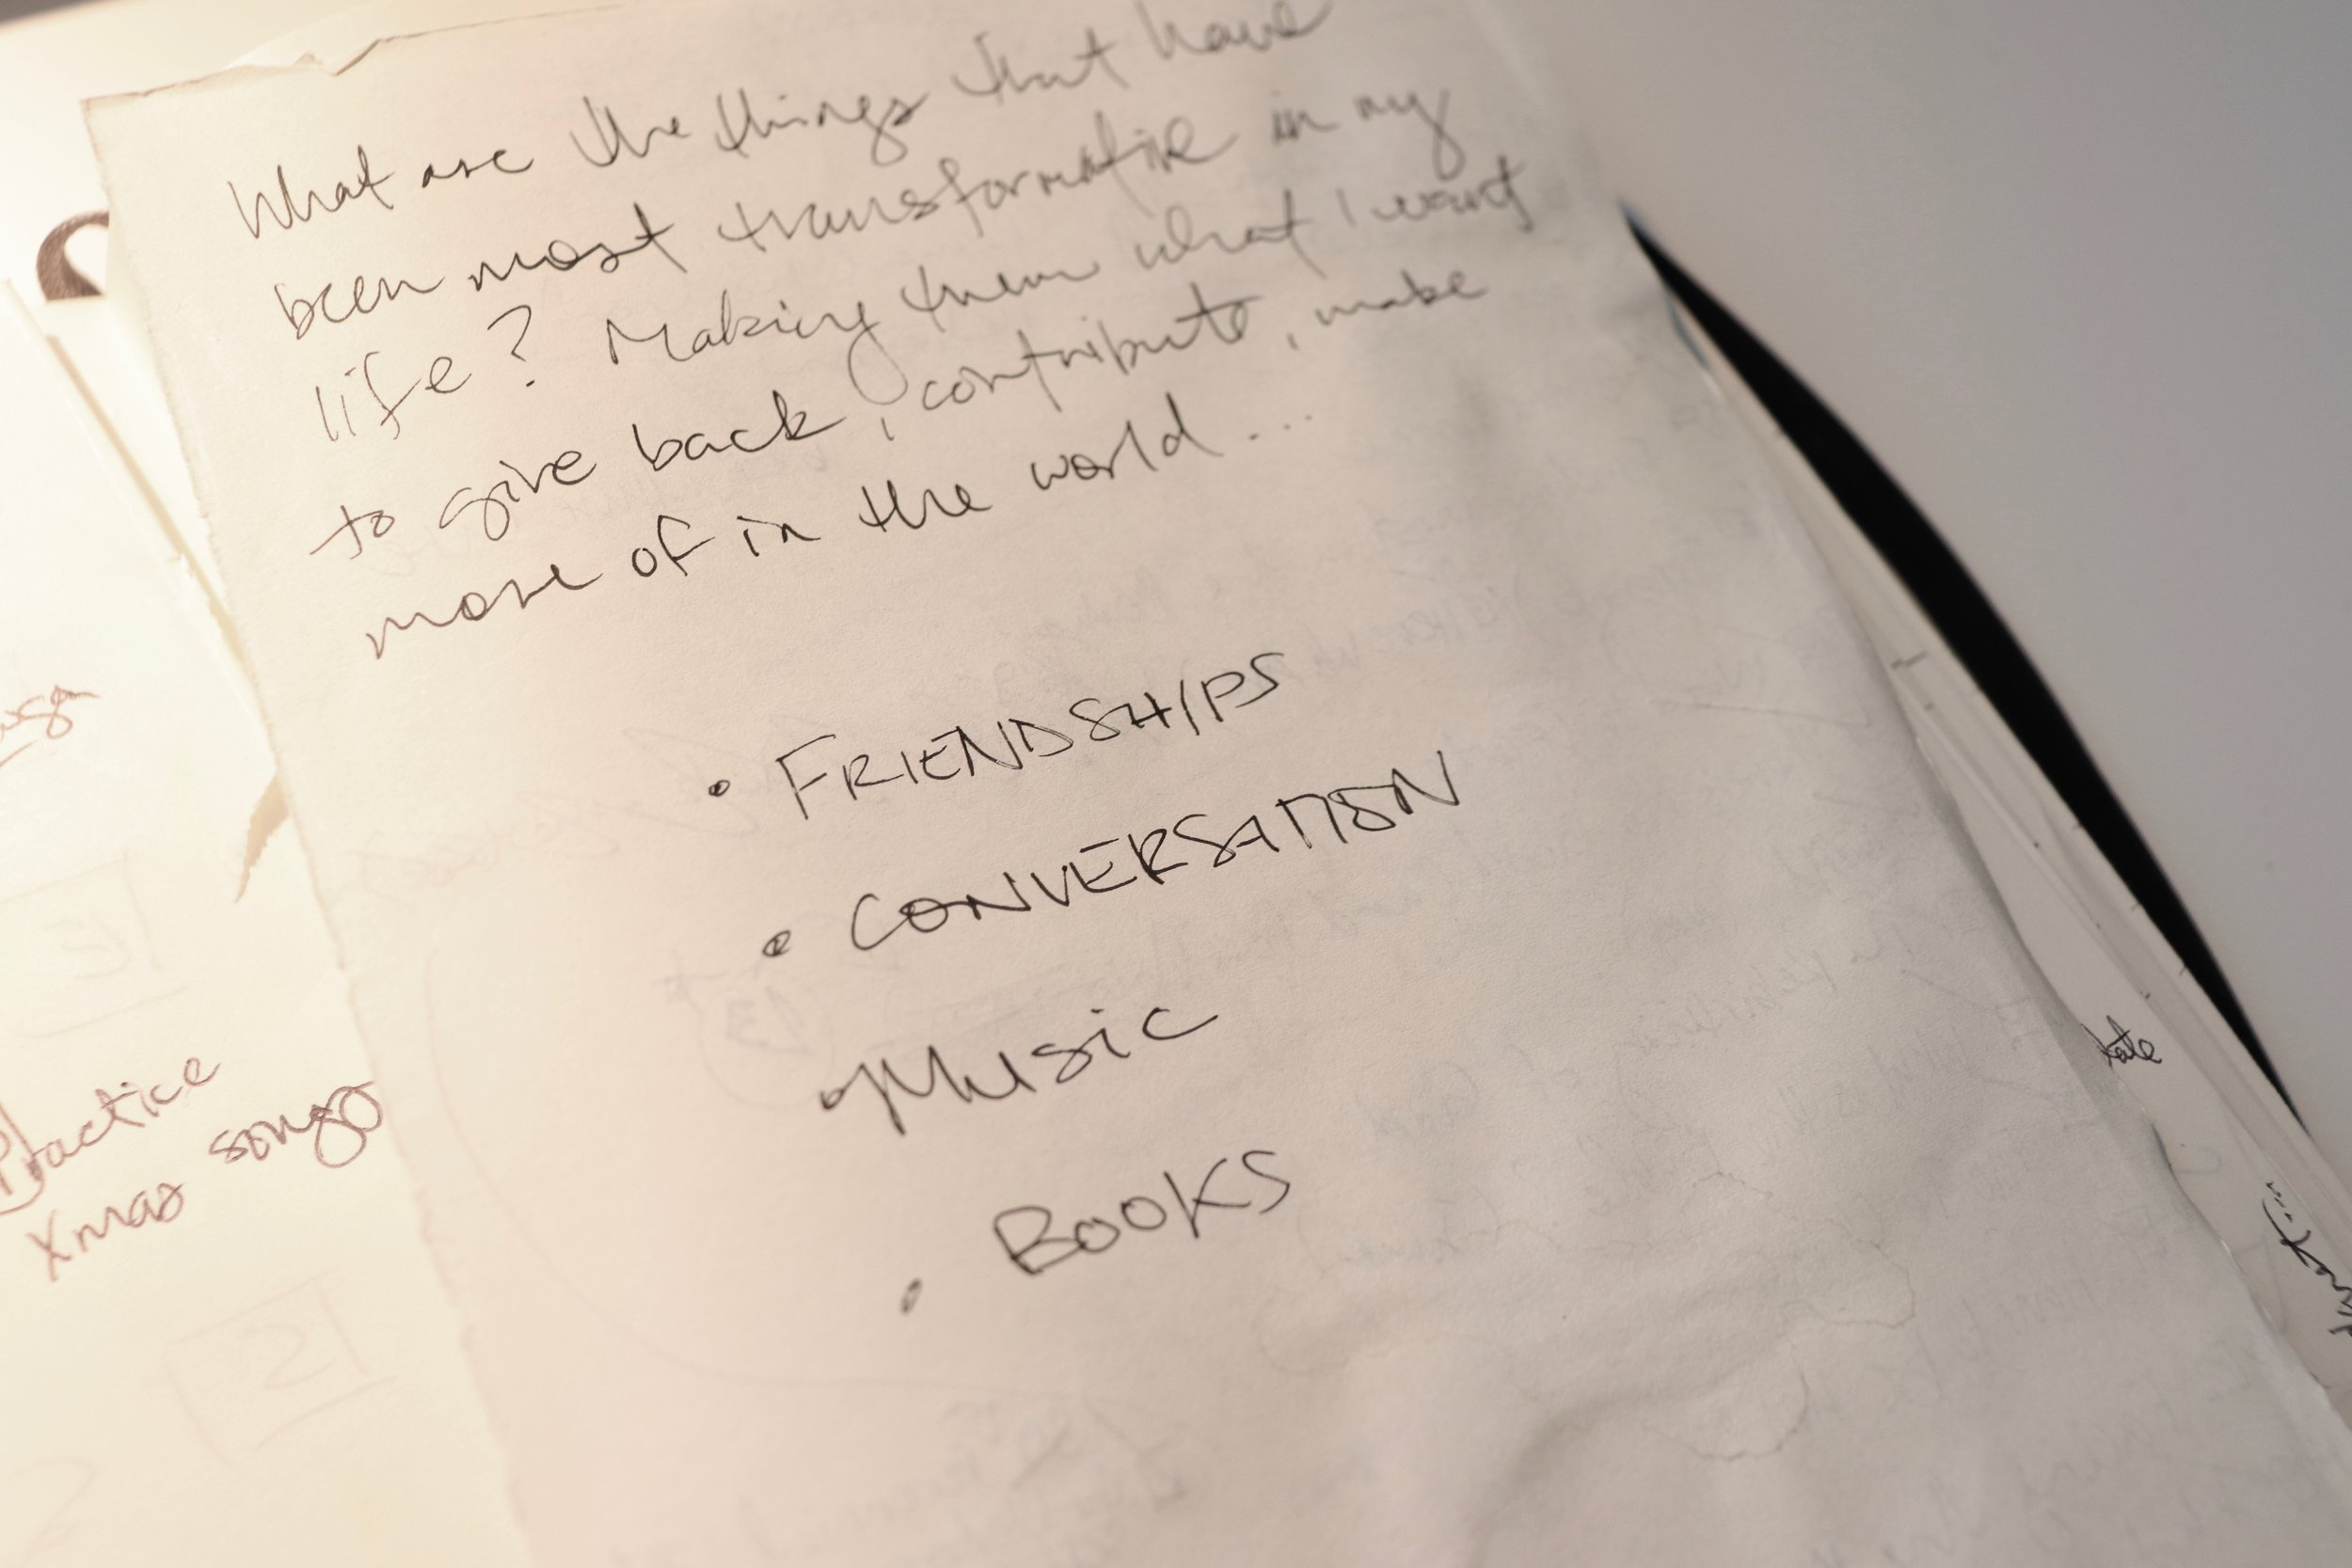 What are the things that have
been most transformative in my
life? Making them what I want
to give back, contribute, make
more of in the world...
• FRIENDSHIPS
• CONVERSATION
• Music
• BOOKS
Practice
Xmas songs